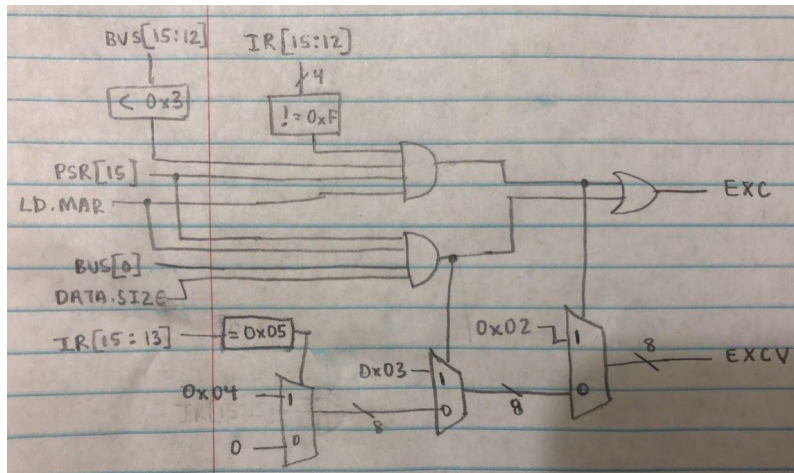 BUS[15:12]
IR[15:12]
4
< 0x3
!= 0xF
PSR[15]
LD.MAR
EXC
BUS[0]
DATA.SIZE
IR[15:13]
= 0x05
0x02
1
8
EXCV
0x03
1
0
0x04
1
0
8
8
0
0